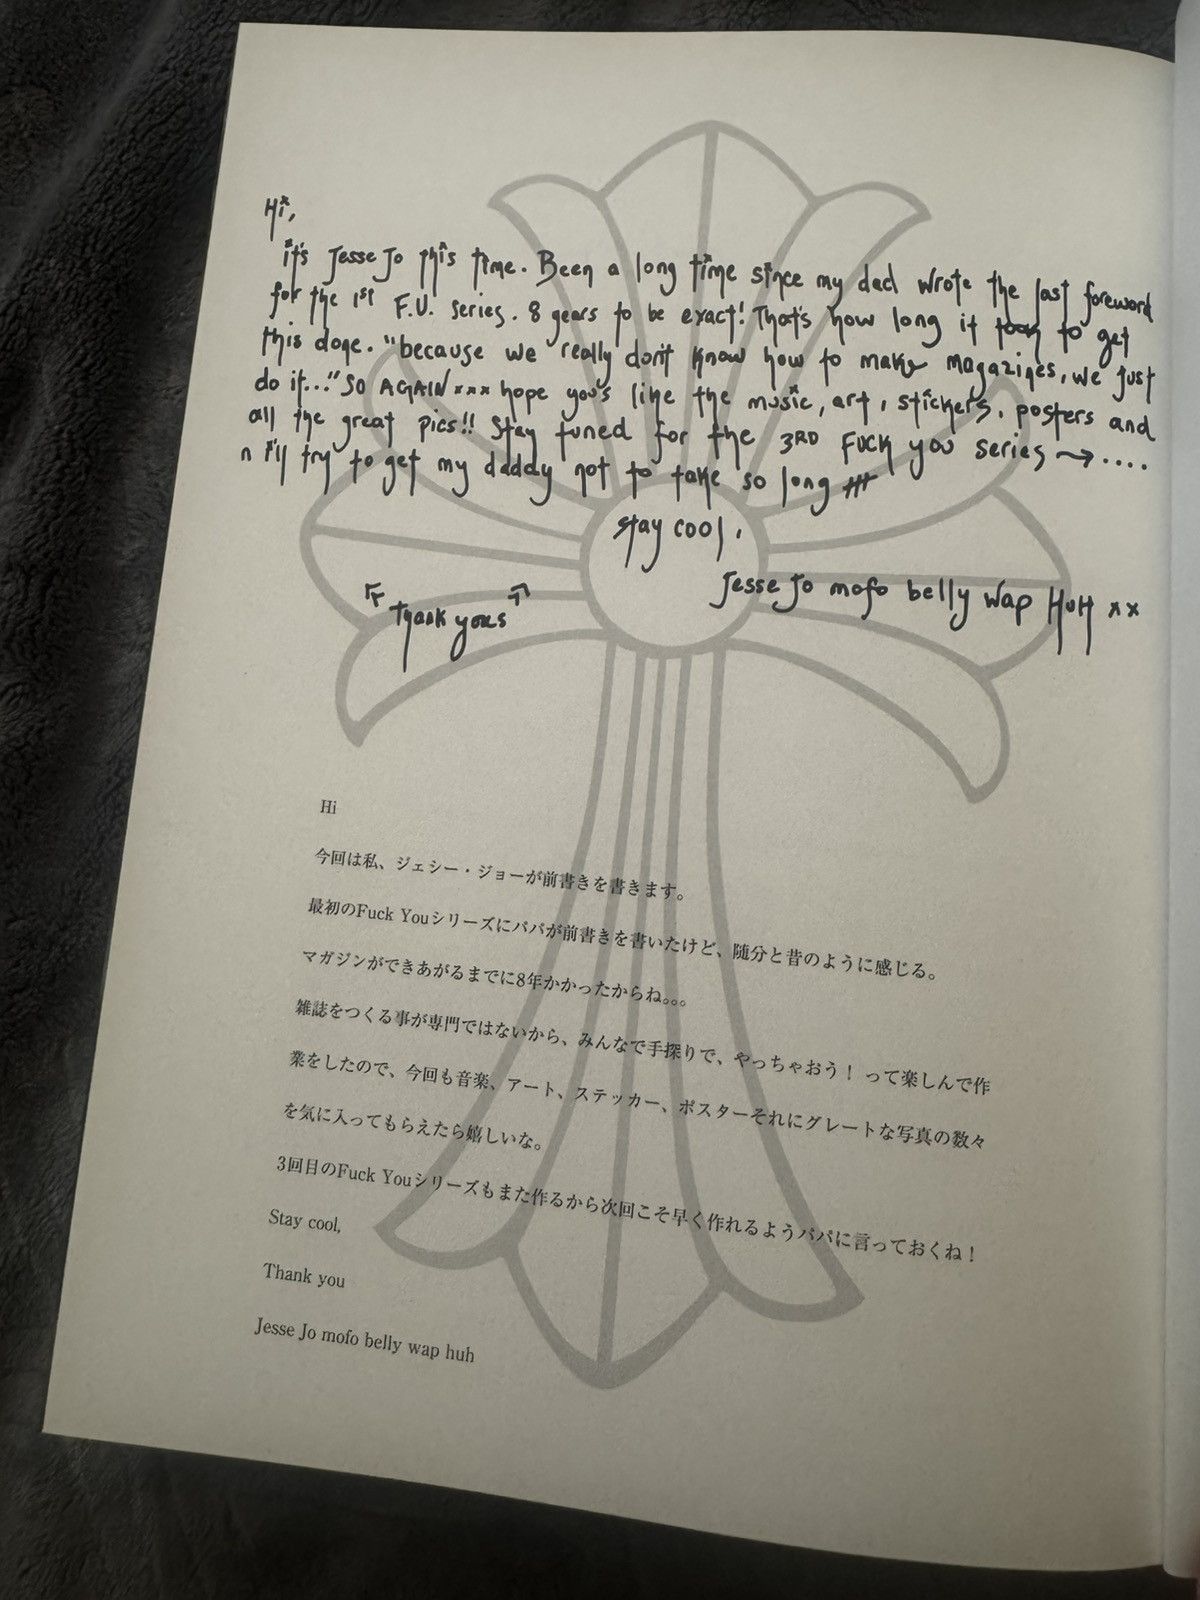 Hi,
it's Jesse Jo this time. Been a long time since my dad wrote the last foreword
for the 1st F.U. series. 8 years to be exact! That's how long it took to get
this done. "because we really don't know how to make magazines, we just
do it..." SO AGAIN xxx hope you's like the music, art, stickers, posters and
all the great pics!! Stay tuned for the 3RD FUCK you series →....
n I'll try to get my daddy not to take so long
stay cool,
Jesse Jo mofo belly wap HUH xx
Thank yous
Hi
今回は私、ジェシー・ジョーが前書きを書きます。
最初のFuck Youシリーズにパパが前書きを書いたけど、随分と昔のように感じる。
マガジンができあがるまでに8年かかったからね。。。
雑誌をつくる事が専門ではないから、みんなで手探りで、やっちゃおう！ って楽しんで作
業をしたので、今回も音楽、アート、ステッカー、ポスターそれにグレートな写真の数々
を気に入ってもらえたら嬉しいな。
3回目のFuck Youシリーズもまた作るから次回こそ早く作れるようパパに言っておくね！
Stay cool,
Thank you
Jesse Jo mofo belly wap huh